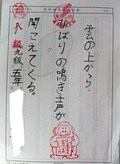 雲の上から、
ひばりの鳴き声が
聞こえてくる。
九級 五年